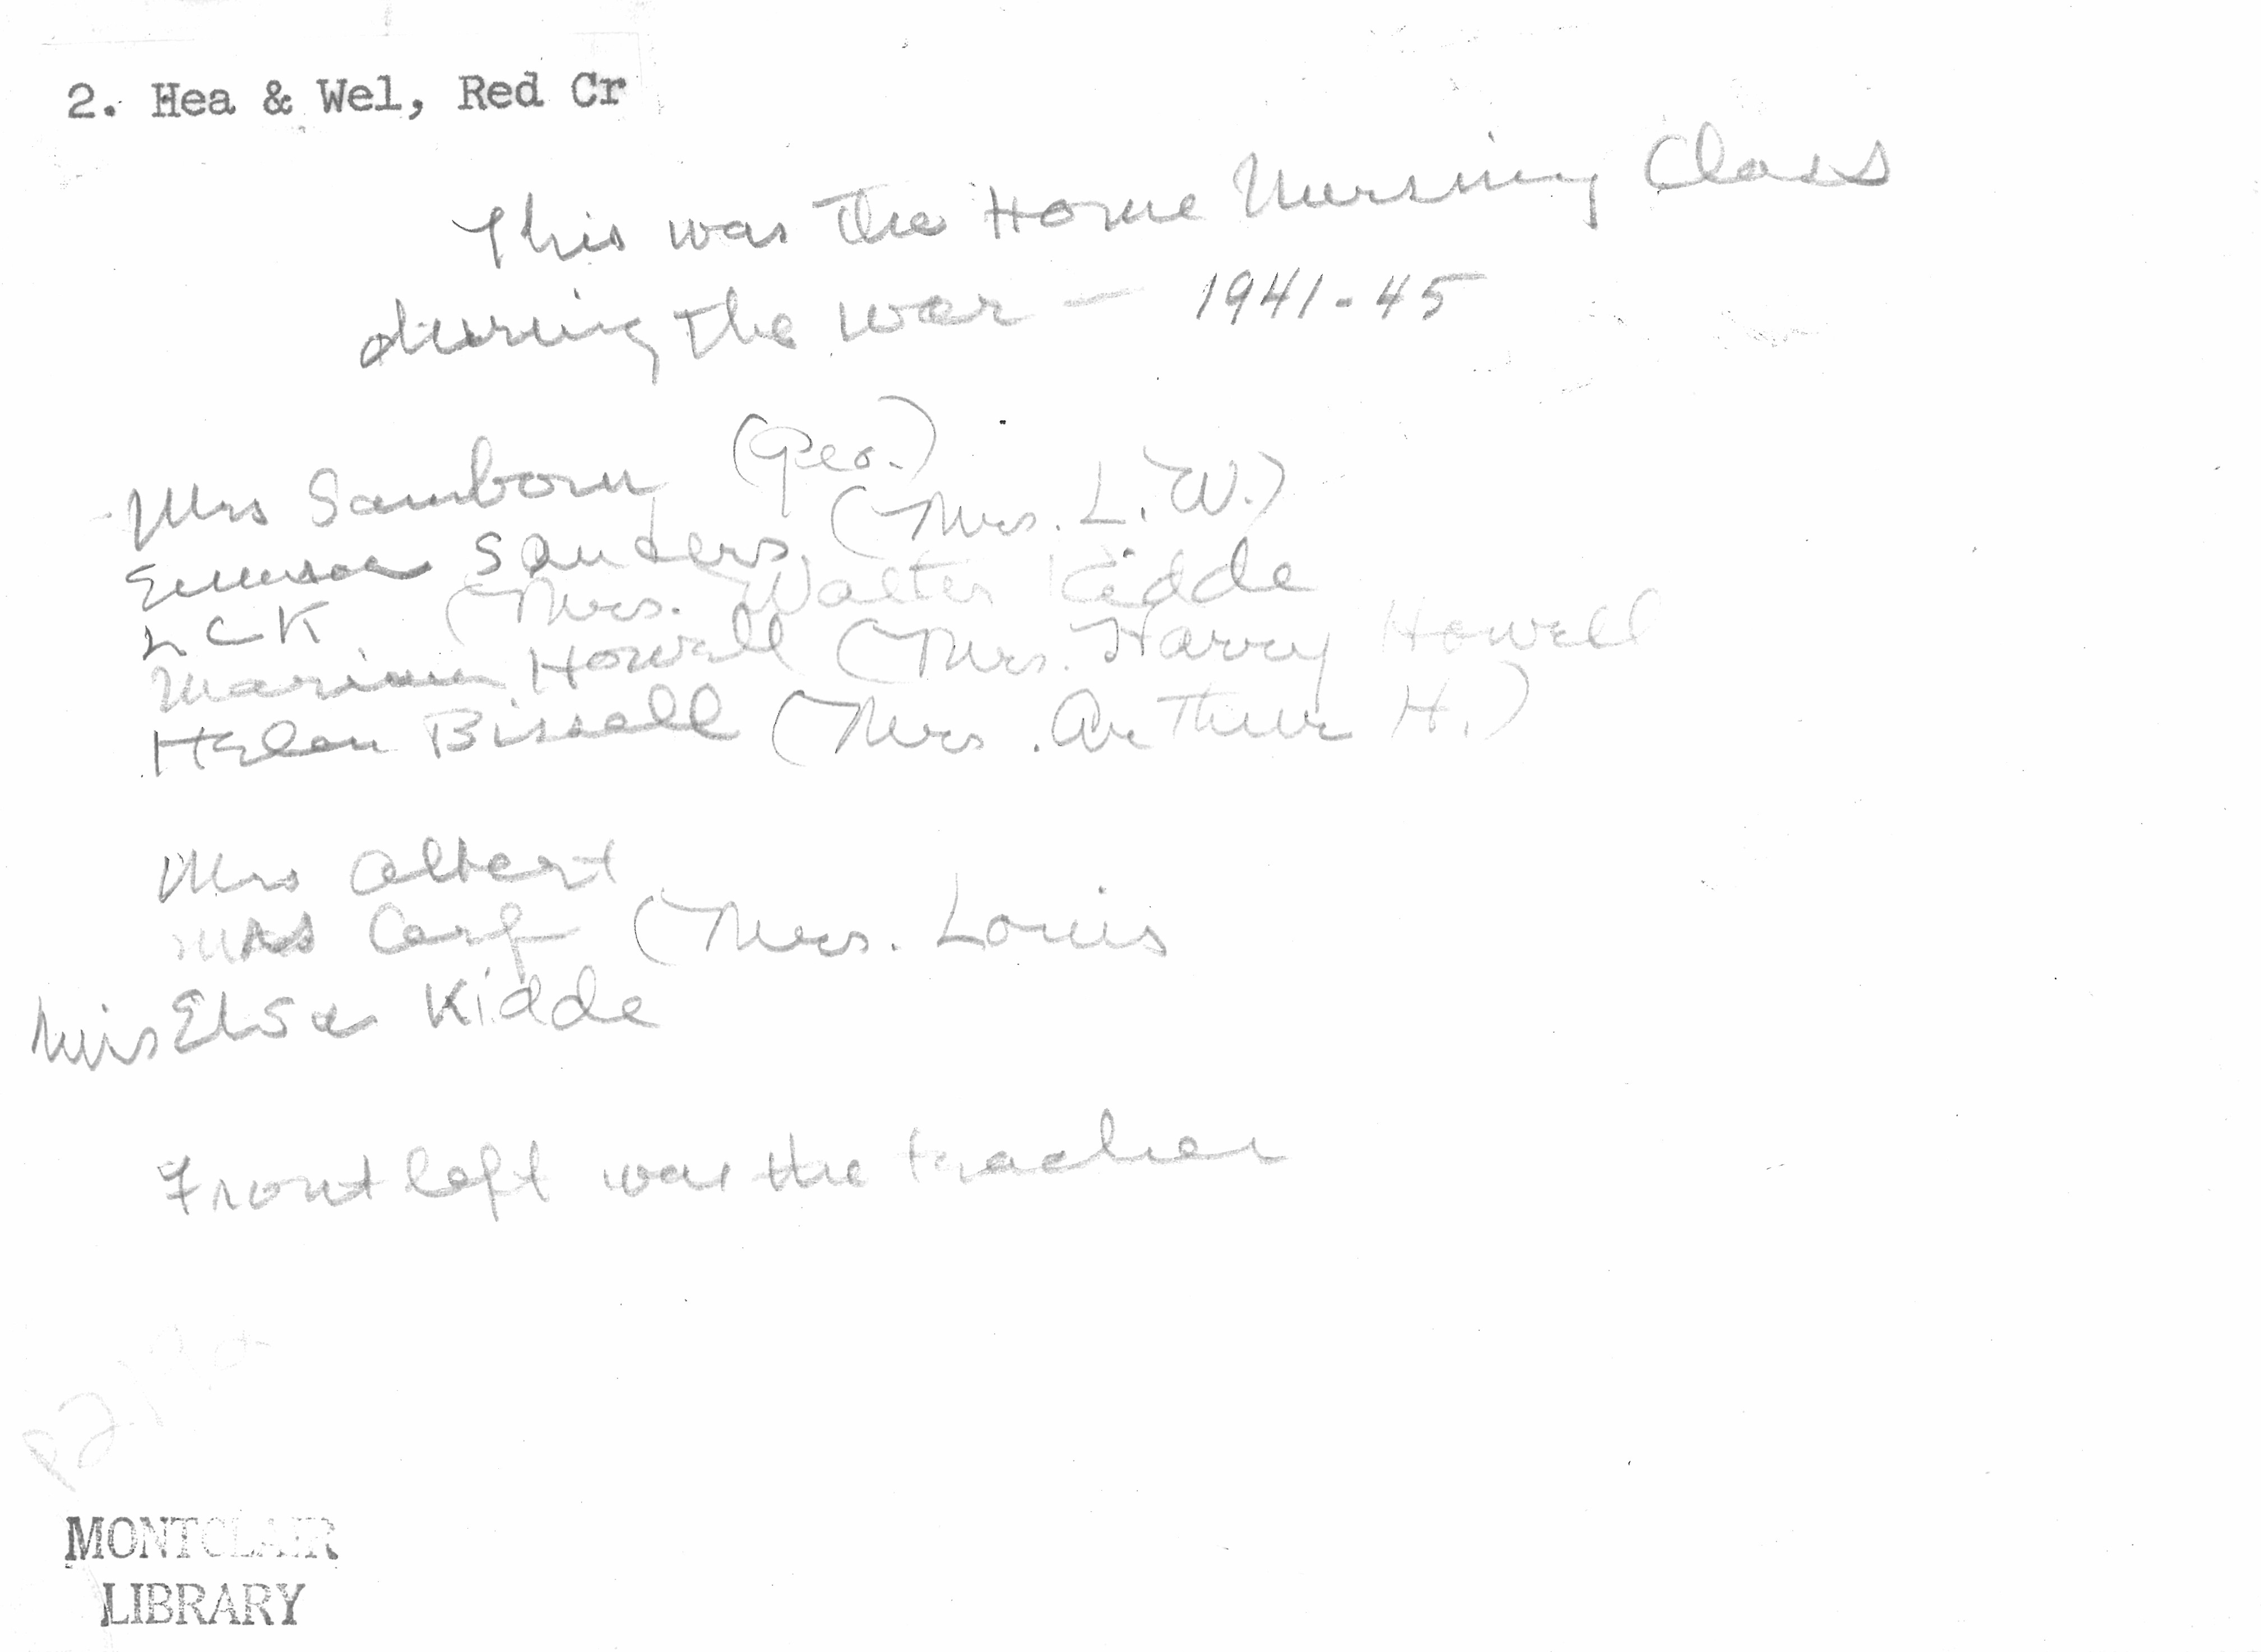 2. Hea & Wel, Red Cr
This was the Home Nursing Class
during the war — 1941-45
Mrs Sanborn (Geo.)
Sanders (Mrs. L. W.)
L C K (Mrs. Walter Kidde
Marian Howell (Mrs. Harry Howell
Helen Bissell (Mrs. Arthur H.)
Mrs Albert
Mrs Cerf (Mrs. Louis
Miss Elsa Kidde
Front left was the teacher
MONTCLAIR
LIBRARY